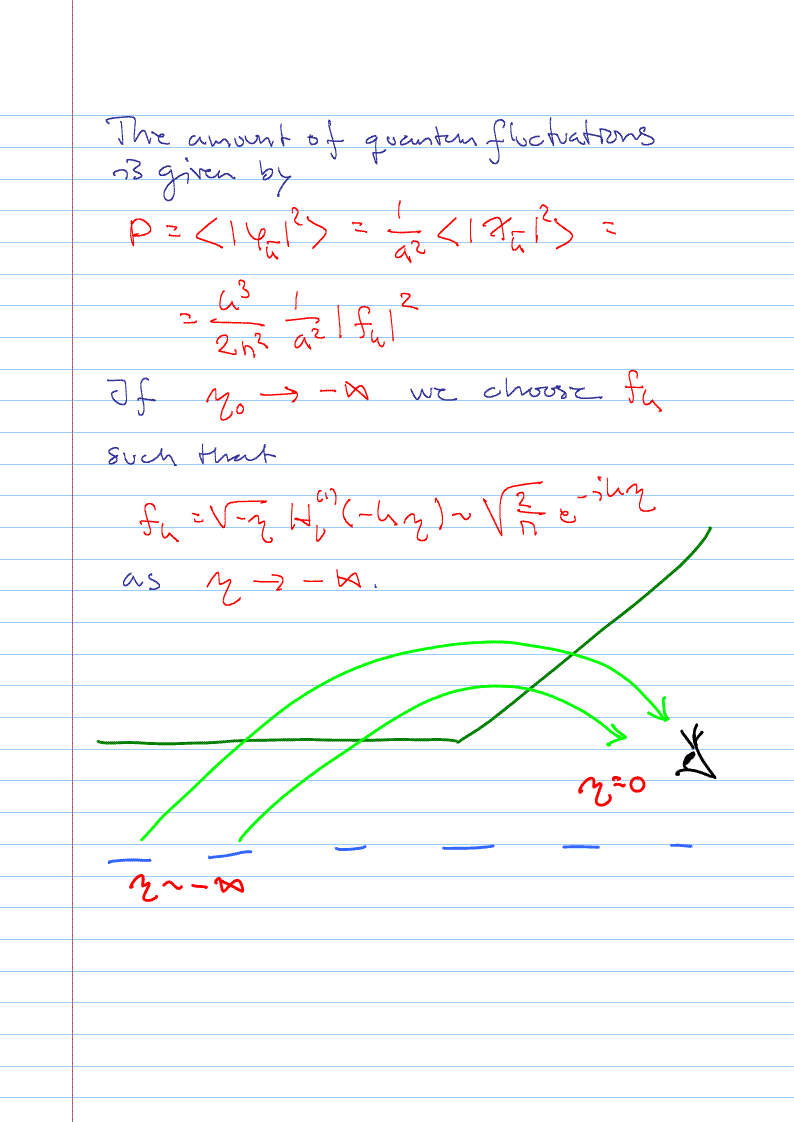 The amount of quantum fluctuations
is given by
P = <|φ_k|²> = 1/a² <|χ_k|²> =
= k³/2π² 1/a² |f_k|²
If η₀ → -∞ we choose f_k
such that
f_k = √-η H_ν^(1)(-kη) ~ √2/π e^-ikη
as η → -∞.
η=0
η ~ -∞